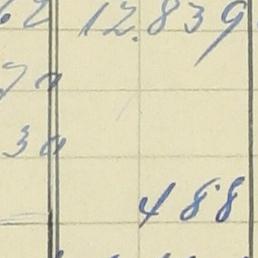 62 12.839
70
30
488